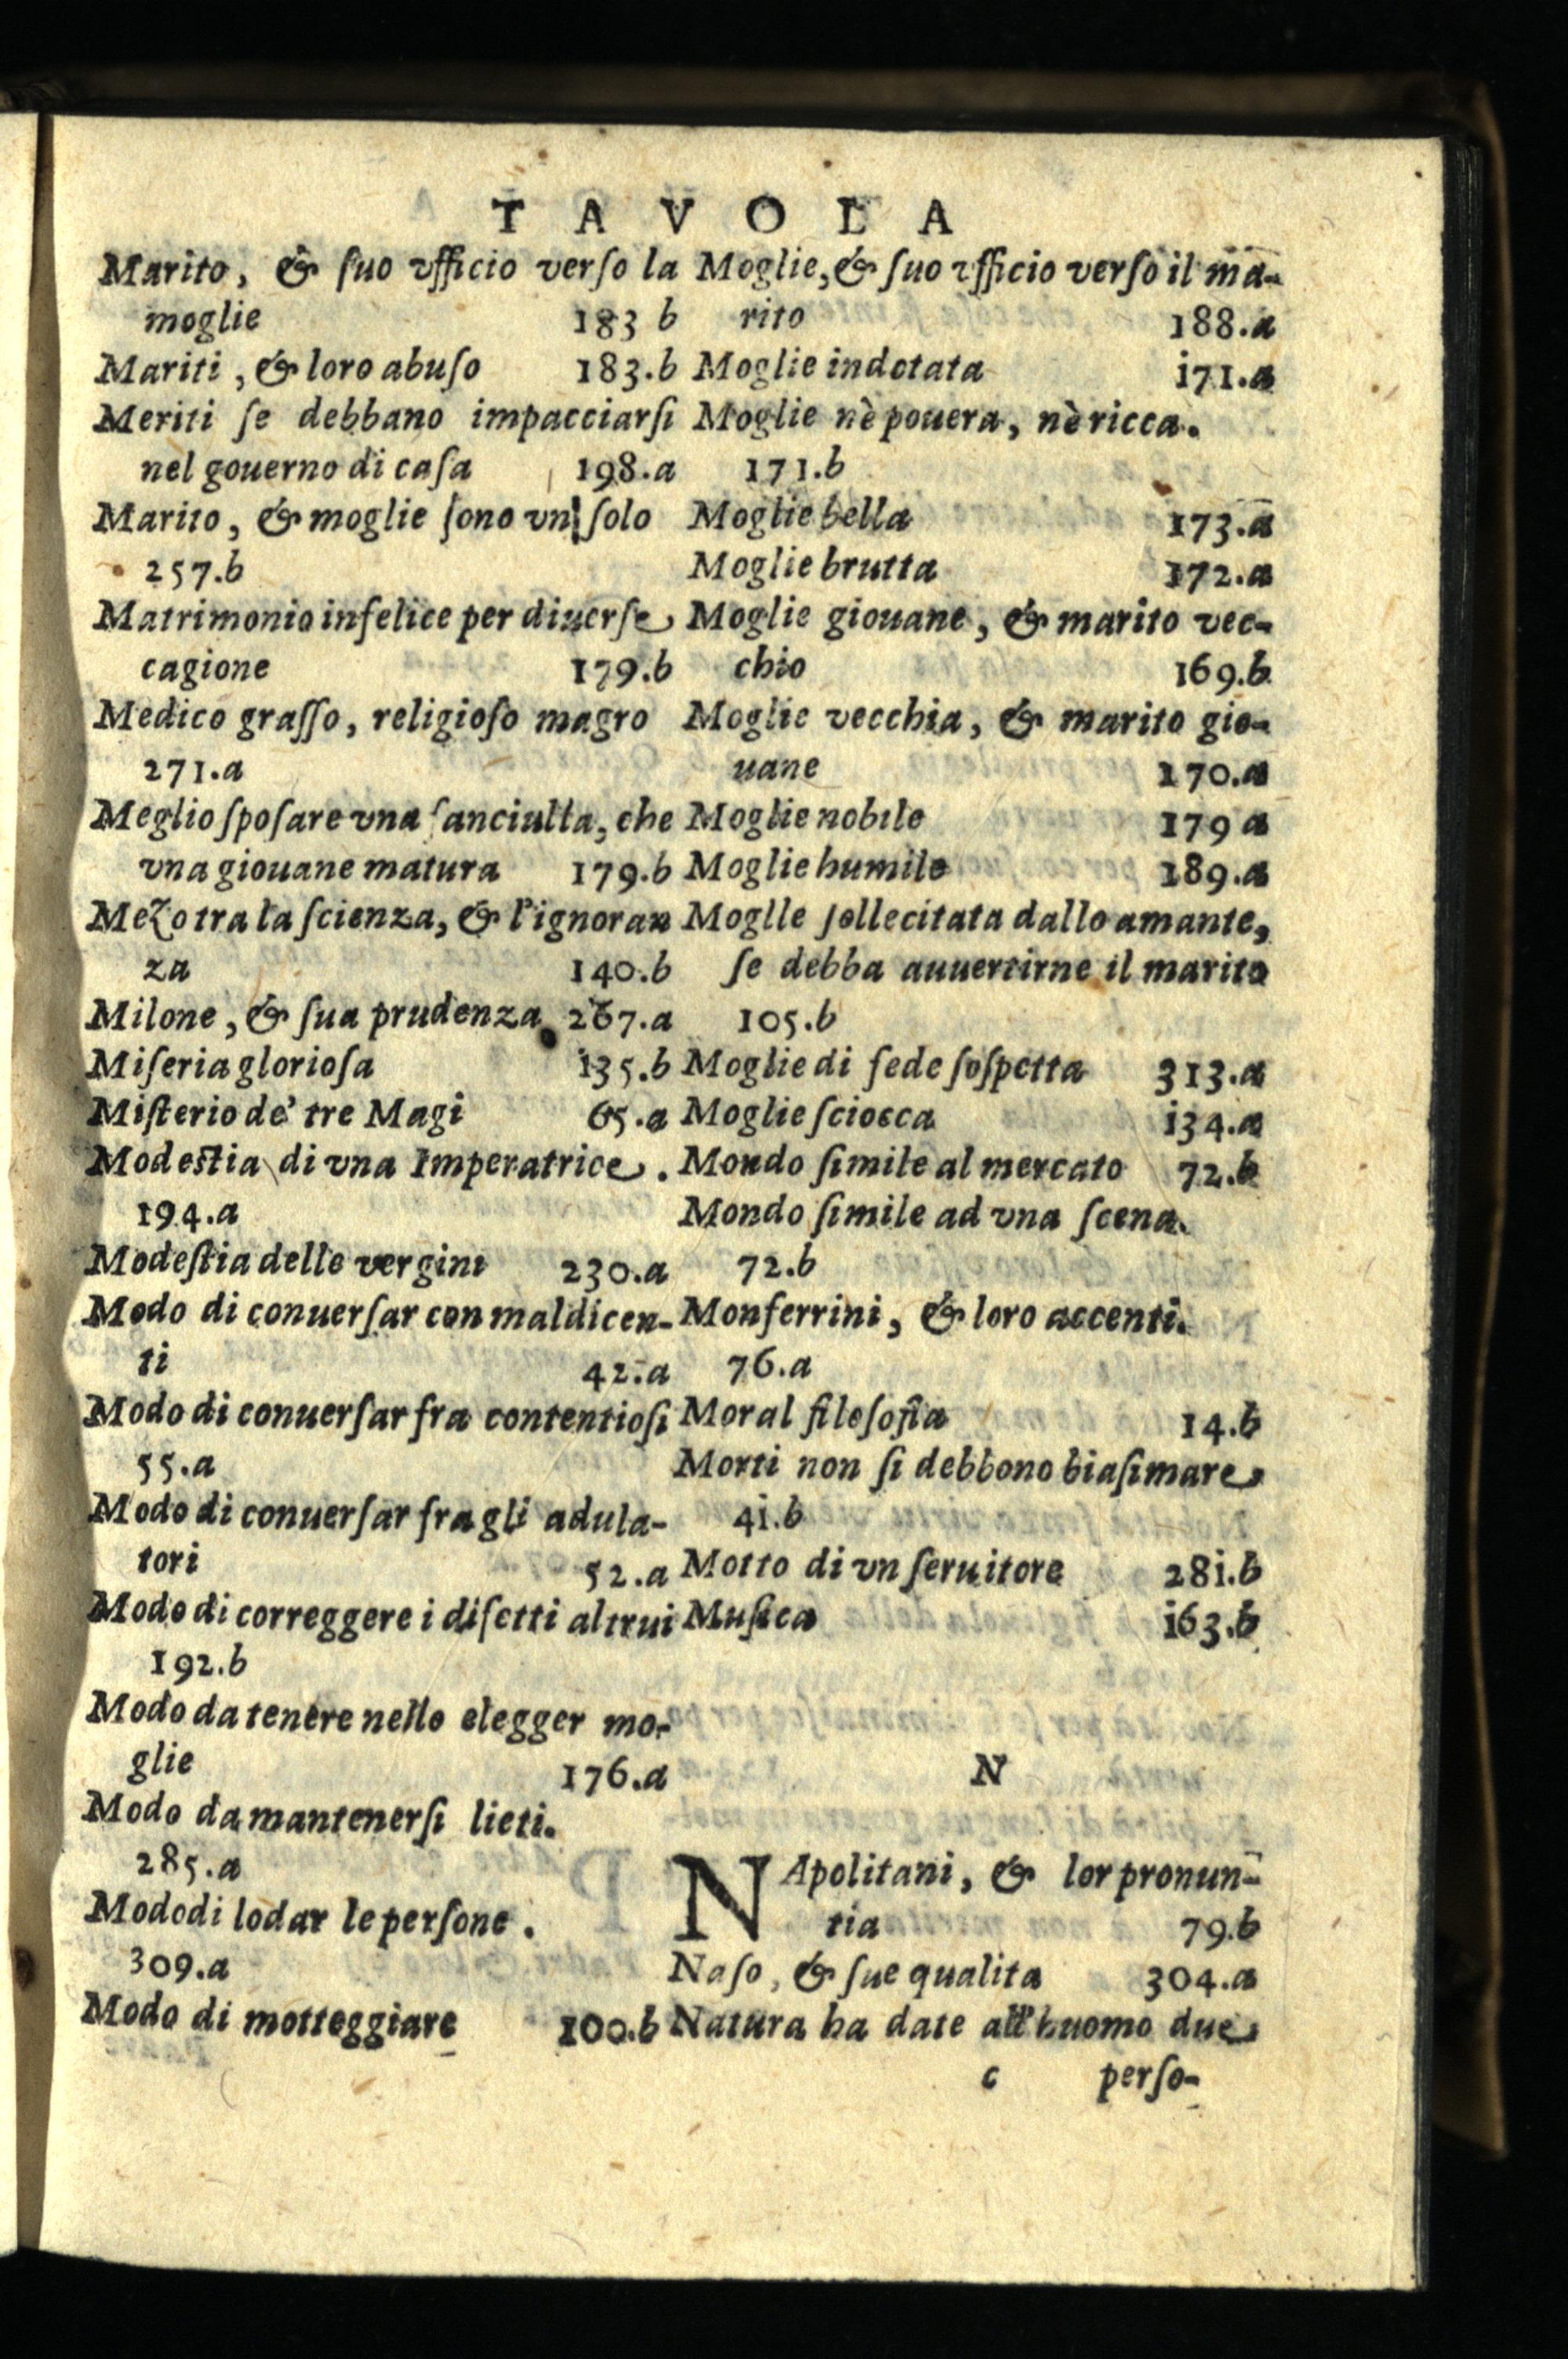 TAVOLA
Marito, & ſuo vfficio verſo la
moglie 183 b
Mariti, & loro abuſo 183.b
Meriti ſe debbano impacciarſi
nel gouerno di caſa 198.a
Marito, & moglie ſono vn ſolo
257.b
Matrimonio infelice per diuerſe
cagione 179.b
Medico graſſo, religioſo magro
271.a
Meglio ſpoſare vna fanciulla, che
vna giouane matura 179.b
Mezo tra la ſcienza, & l'ignoran
za 140.b
Milone, & ſua prudenza 267.a
Miſeria glorioſa 135.b
Miſterio de' tre Magi 65.a
Modeſtia di vna Imperatrice.
194.a
Modeſtia delle vergini 230.a
Modo di conuerſar con maldicen-
ti 42.a
Modo di conuerſar fra contentioſi
55.a
Modo di conuerſar fra gli adula-
tori 52.a
Modo di correggere i difetti altrui
192.b
Modo da tenere nello elegger mo-
glie 176.a
Modo da mantenerſi lieti.
285.a
Modo di lodar le perſone.
309.a
Modo di motteggiare 100.b
Moglie, & ſuo vfficio verſo il ma-
rito 188.a
Moglie indotata i71.a
Moglie nè pouera, nè ricca.
171.b
Moglie bella 173.a
Moglie brutta 172.a
Moglie giouane, & marito vec-
chio 169.b
Moglie vecchia, & marito gio-
uane 170.a
Moglie nobile 179 a
Moglie humile 189.a
Moglle ſollecitata dallo amante,
ſe debba auuertirne il marito
105.b
Moglie di fede ſoſpetta 313.a
Moglie ſciocca i34.a
Mondo ſimile al mercato 72.b
Mondo ſimile ad vna ſcena.
72.b
Monferrini, & loro accenti.
76.a
Moral filoſofia 14.b
Morti non ſi debbono biaſimare
4i.b
Motto di vn ſeruitore 28i.b
Muſica i63.b
N
NApolitani, & lor pronun-
tia 79.b
Naſo, & ſue qualita 304.a
Natura ha date all'huomo due
c perſo-